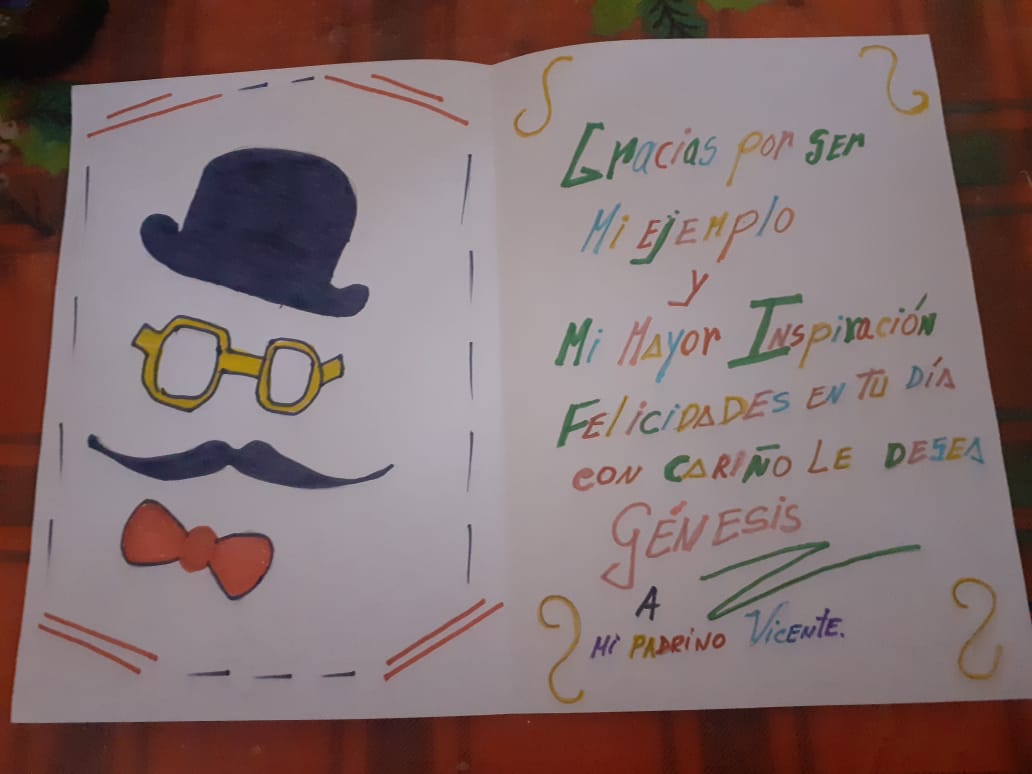 Gracias por ser
Mi ejemplo
y
Mi Mayor Inspiración
Felicidades en tu día
con cariño le desea
Génesis
A
Mi padrino Vicente.